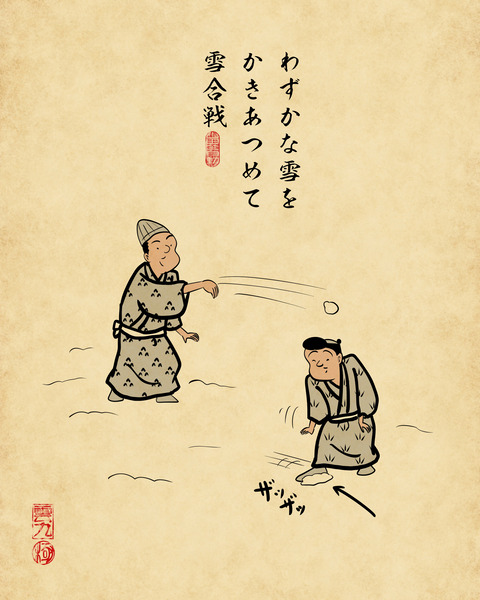 わずかな雪を
かきあつめて
雪合戦
ザッザッ